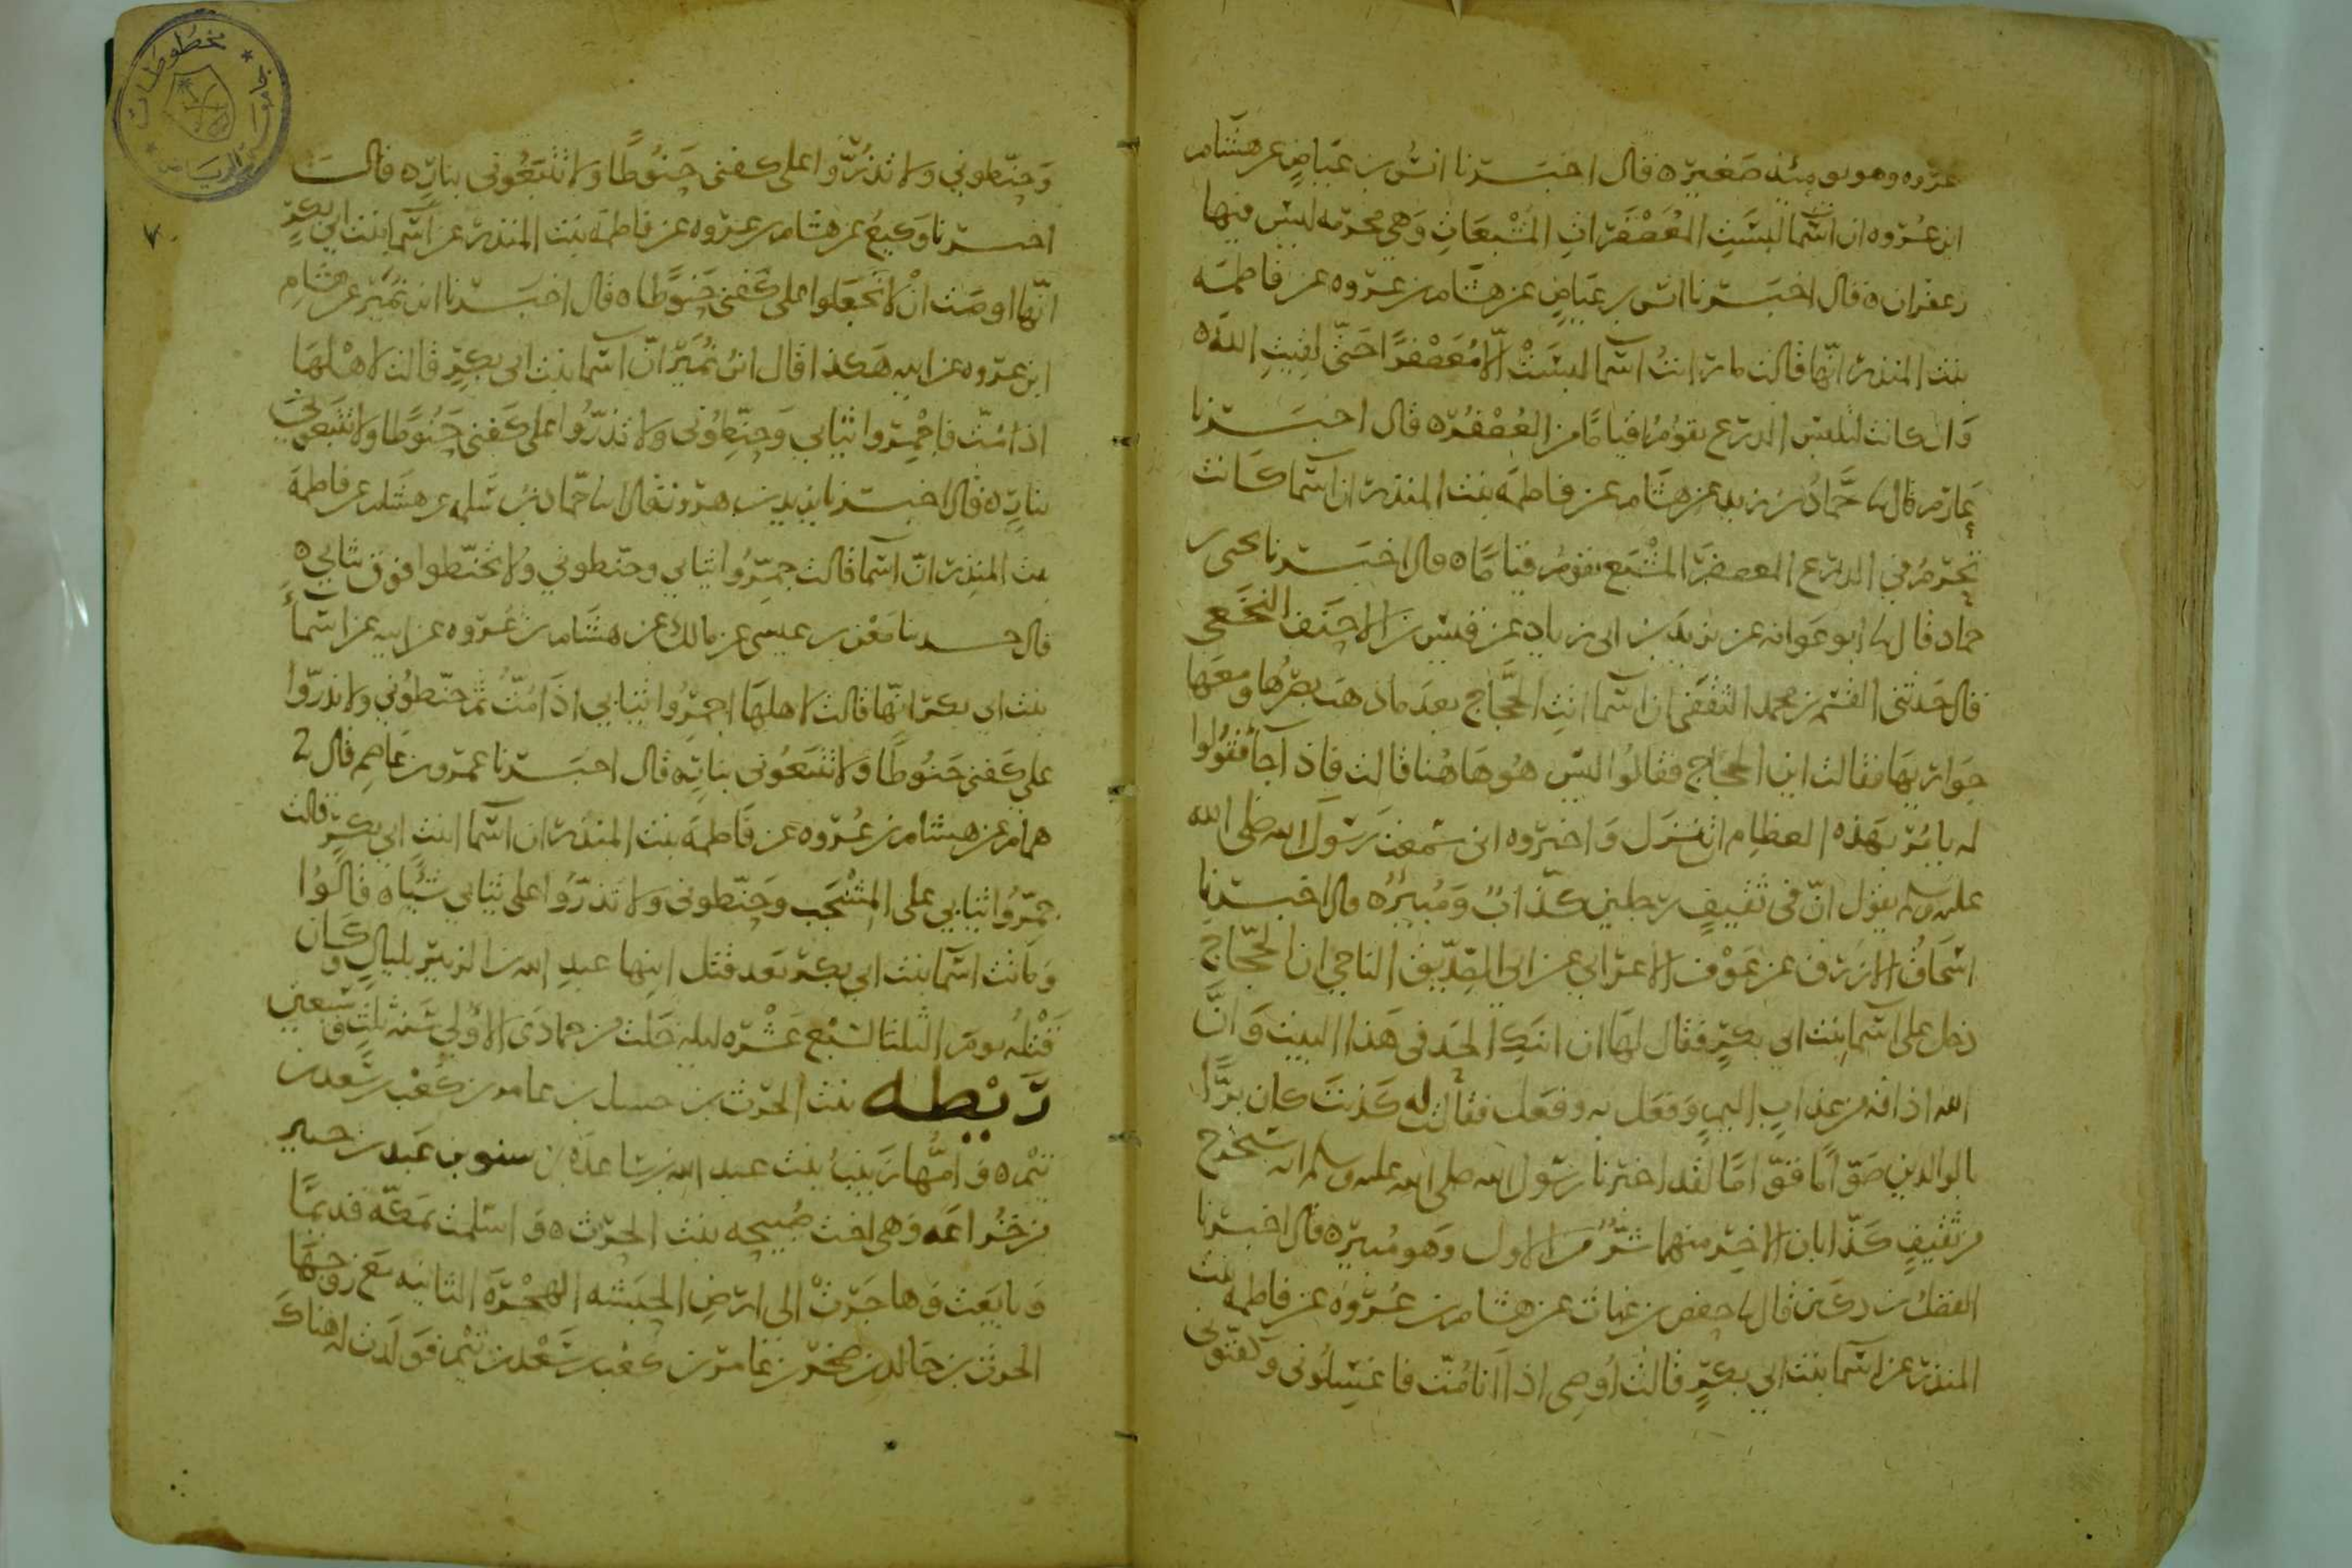 عروه وهو يومئذ صغير ه قال اخبرنا انس بن عياض عن هشام
ابن عروه ان اسما لبست المعصفرات المشبعات وهي محرمه ليس فيها
زعفران ه قال اخبرنا انس بن عياض عن هشام بن عروه عن فاطمه
بنت المنذر انها قالت ما رايت اسما لبست الا معصفرا حتى لقيت الله ه
وان كانت لتلبس الدرع يقوم قياما من العصفر ه قال اخبرنا
عارم قال نا حماد بن زيد عن هشام عن فاطمه بنت المنذر ان اسما كانت
تحرم في الدرع المعصفر المشبع يقوم قياما ه قال اخبرنا يحيى بن
حماد قال نا ابو عوانه عن يزيد بن ابي زياد عن قيس بن الاحنف النخعي
قال حدثني القسم بن محمد الثقفي ان اسما اتت الحجاج بعد ما ذهب بصرها ومعها
جواريها فقالت اين الحجاج فقالوا ليس هو هاهنا قالت فاذا جا فقولوا
له يامر بهذه العظام ان تنزل واخبروه اني سمعت رسول الله صلى الله
عليه وسلم يقول ان في ثقيف رجلين كذاب ومبير ه قال اخبرنا
اسحاق الازرق عن عوف الاعرابي عن ابي الصديق الناجي ان الحجاج
دخل على اسما بنت ابي بكر فقال لها ان ابنك الحد في هذا البيت وان
الله اذاقه من عذاب اليم وفعل به وفعل فقالت له كذبت كان برا
بالوالدين صواما قواما لقد اخبرنا رسول الله صلى الله عليه وسلم انه سيخرج
من ثقيف كذابان الاخر منهما شر من الاول وهو مبير ه قال اخبرنا
الفضل بن دكين قال نا حفص بن غياث عن هشام بن عروه عن فاطمه بنت
المنذر عن اسما بنت ابي بكر قالت اوصي اذا انا مت فاغسلوني وكفنوني
وحنطوني ولا تذروا على كفني حنوطا ولا تتبعوني بنار ه قالت
اخبرنا وكيع عن هشام بن عروه عن فاطمه بنت المنذر عن اسما بنت ابي بكر
انها اوصت ان لا تجعلوا على كفني حنوطا ه قال اخبرنا ابن نمير عن هشام
ابن عروه عن ابيه هكذا قال ابن نمير ان اسما بنت ابي بكر قالت لاهلها
اذا مت فاجمروا ثيابي وحنطوني ولا تذروا على كفني حنوطا ولا تتبعوني
بنار ه قال اخبرنا يزيد بن هرون قال انا حماد بن سلمه عن هشام عن فاطمه
بنت المنذر ان اسما قالت جمروا ثيابي وحنطوني ولا تحنطوا فوق ثيابي ه
قال حدثنا معن بن عيسى عن مالك عن هشام بن عروه عن ابيه عن اسماء
بنت ابي بكر انها قالت لاهلها اجمروا ثيابي اذا مت ثم حنطوني ولا تذروا
على كفني حنوطا ولا تتبعوني بنار ه قال اخبرنا عمرو بن عاصم قال نا
همام عن هشام بن عروه عن فاطمه بنت المنذر ان اسما ابنت ابي بكر قالت
جمروا ثيابي على المشجب وحنطوني ولا تذروا على ثيابي شيئا ه قالوا
وماتت اسما بنت ابي بكر بعد قتل ابنها عبد الله بن الزبير بليال وكان
قتله يوم الثلثا لسبع عشره ليله خلت من جمادى الاولى سنه ثلث وسبعين
ريطه بنت الحرث بن حبيله بن عامر بن كعب بن سعد بن
تيم ه وامها زينب بنت عبد الله بن ساعده بن مسنو بن عبد بن حبير
من خزاعه وهي اخت صبيحه بنت الحرث ه واسلمت بمكه قديما
وبايعت وهاجرت الى ارض الحبشه الهجره الثانيه مع زوجها
الحرث بن خالد بن صخر بن عامر بن كعب بن سعد بن تيم فولدت له هناك
مخطوطات
جامعة الرياض
٧٠